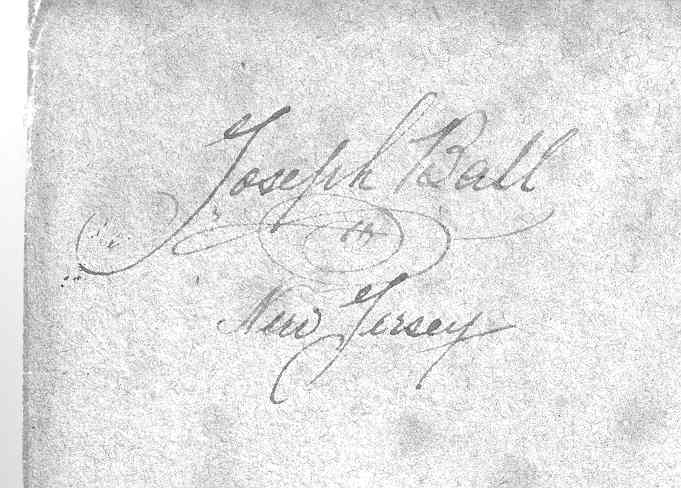 Joseph Ball
New Jersey